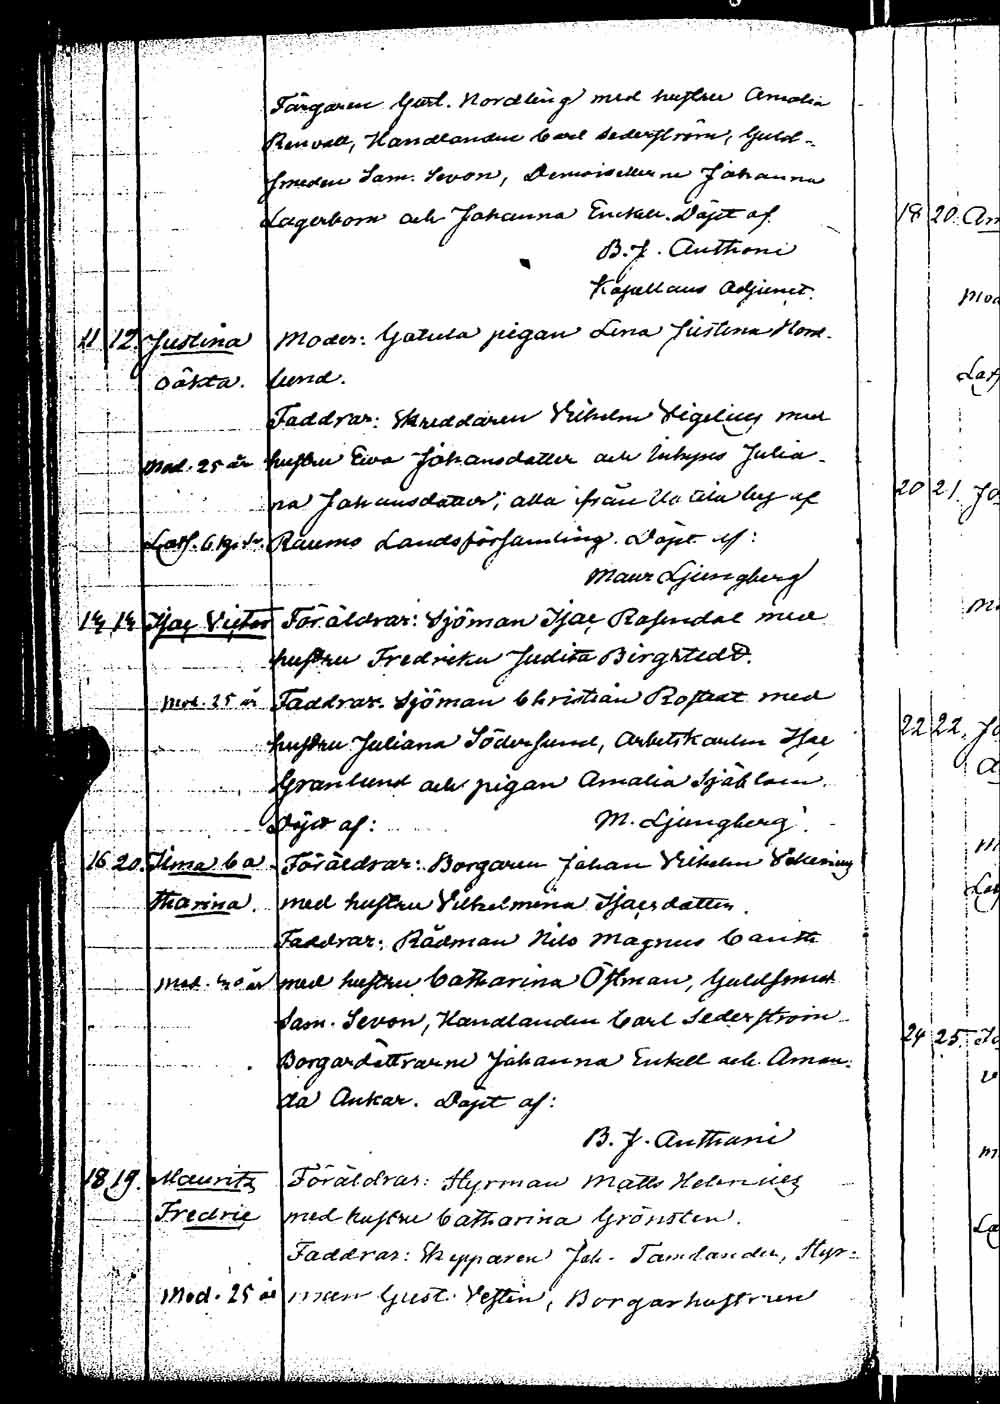 Färgaren Gust. Nordling med hustru Amalia
Renvall, Handlanden Carl Sederström, Guld-
smeden Sam. Sevon, Demoisellerne Johanna
Lagerbom och Johanna Enckell. Döpt af.
B. J. Anthoni
Kapellans Adjunct.
11 12. Justina Moder: Gatula pigan Lena Justina Nord-
oäkta. lund.
Faddrar: Skreddaren Vilhelm Vigelius med
Mod. 25 år hustru Eva Johansdotter och Inhyses Julia-
na Johansdotter, alla ifrån by af
6 Raumo Landsförsamling. Döpt af:
Maur Ljungberg
14 14 Isac Victor Föräldrar: Sjöman Isac Rosendal med
hustru Fredrika Judita Birgstedt.
Mod. 25 år Faddrar. Sjöman Christian Rostedt med
hustru Juliana Söderlund, Arbetskarlen Isac
Granlund och pigan Amalia Sjöblom.
Döpt af: M. Ljungberg.
16 20. Ilma Ca Föräldrar: Borgaren Johan Vilhelm
tharina. med hustru Vilhelmina Isacsdotter.
Faddrar: Rådman Nils Magnus Canth
Mod. 40 år med hustru Catharina Östman, Guldsmed
Sam. Sevon, Handlanden Carl Sederström
Borgardöttrarne Johanna Enkell och Aman-
da Ankar. Döpt af:
B. J. Anthoni
18 19. Mauritz Föräldrar: Styrman Matts Helenius
Fredric med hustru Catharina Grönsten.
Faddrar: Skepparen Joh. Tamlander, Styr-
Mod. 25 år man Gust. Vestin, Borgarhustrun
18 20. Am
Mod
20 21. Jo
22 22. Jo
24 25.